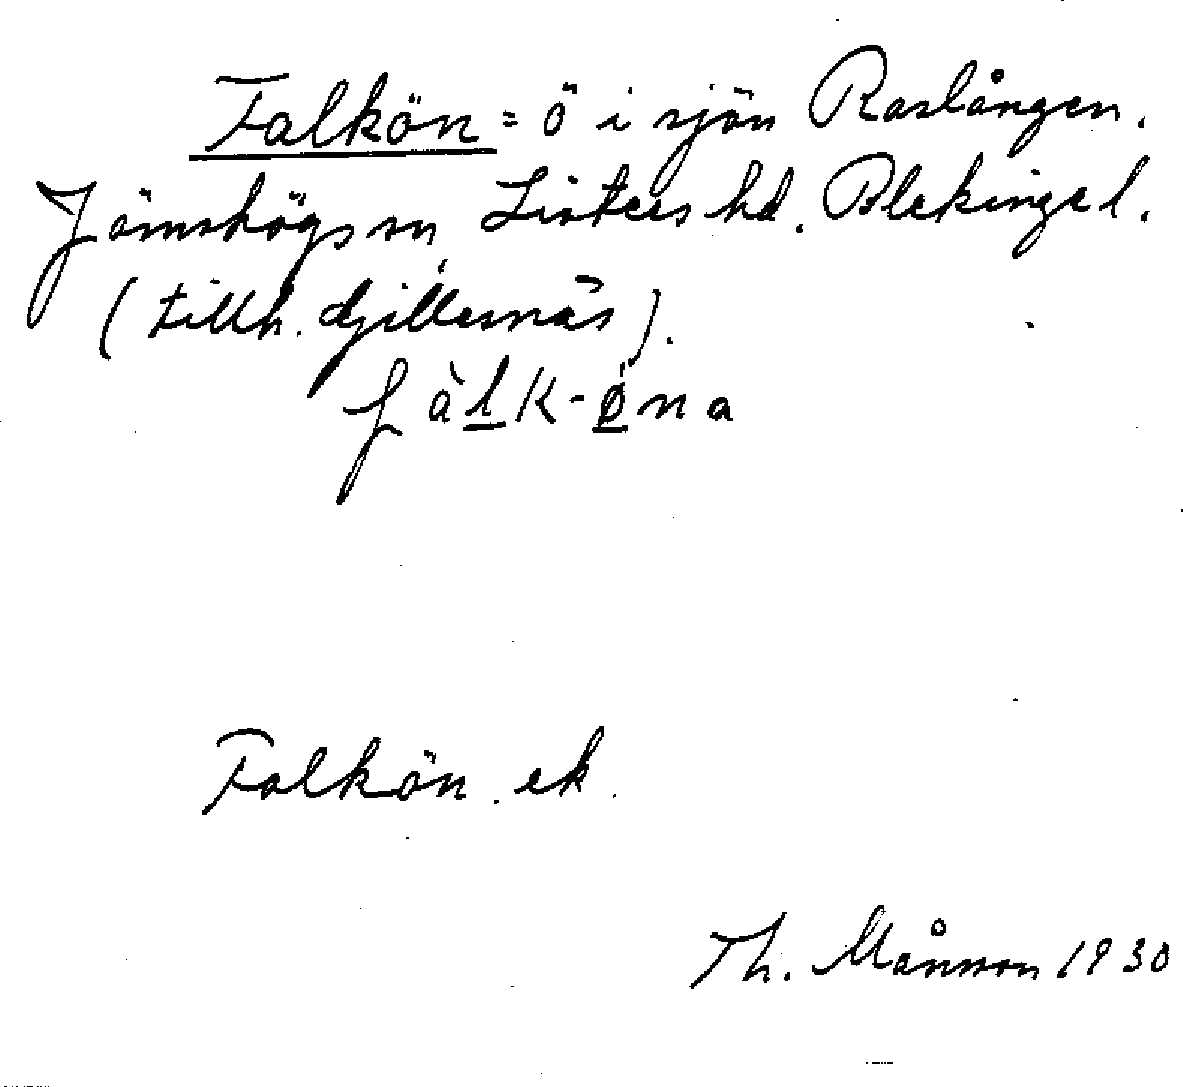 Falkön = ö i sjön Raslången.
Jämshögs sn, Listers hd. Blekinge l.
(tillh. Gillesnäs).
fàlk-øna
Falkön. ek.
Th. Månsson 1930